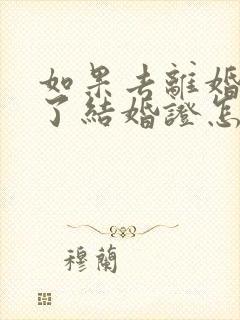 如果去離婚
了結婚證怎
穆蘭